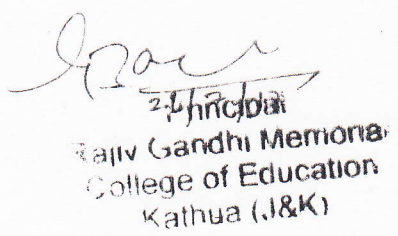 Principal
Rajiv Gandhi Memorial
College of Education
Kathua (J&K)